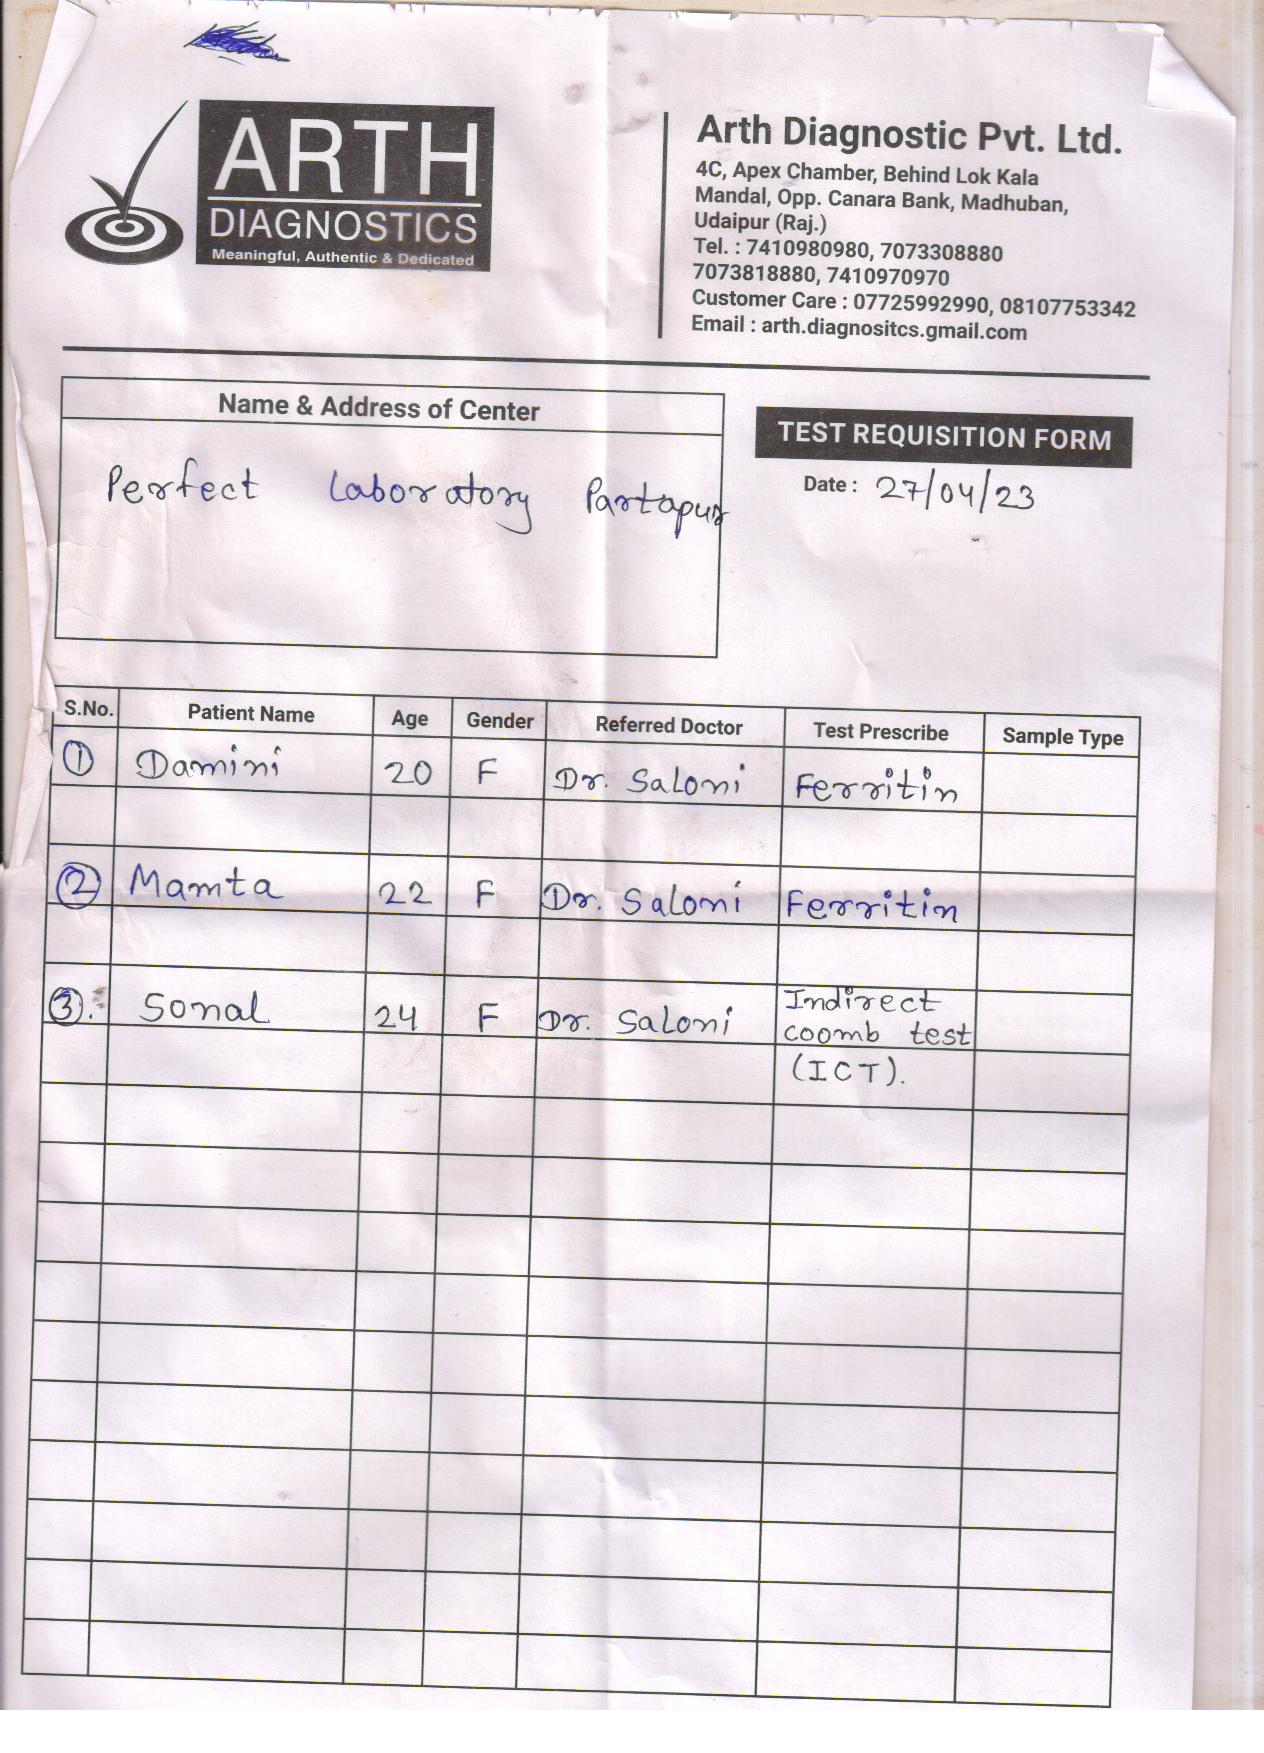 ARTH
DIAGNOSTICS
Meaningful, Authentic & Dedicated
Arth Diagnostic Pvt. Ltd.
4C, Apex Chamber, Behind Lok Kala
Mandal, Opp. Canara Bank, Madhuban,
Udaipur (Raj.)
Tel. : 7410980980, 7073308880
7073818880, 7410970970
Customer Care : 07725992990, 08107753342
Email : arth.diagnositcs.gmail.com
Name & Address of Center
Perfect Laboratory Partapur
TEST REQUISITION FORM
Date : 27/04/23
S.No. Patient Name Age Gender Referred Doctor Test Prescribe Sample Type
1 Damini 20 F Dr. Saloni Ferritin
2 Mamta 22 F Dr. Saloni Ferritin
3. Sonal 24 F Dr. Saloni Indirect
coomb test
(ICT).